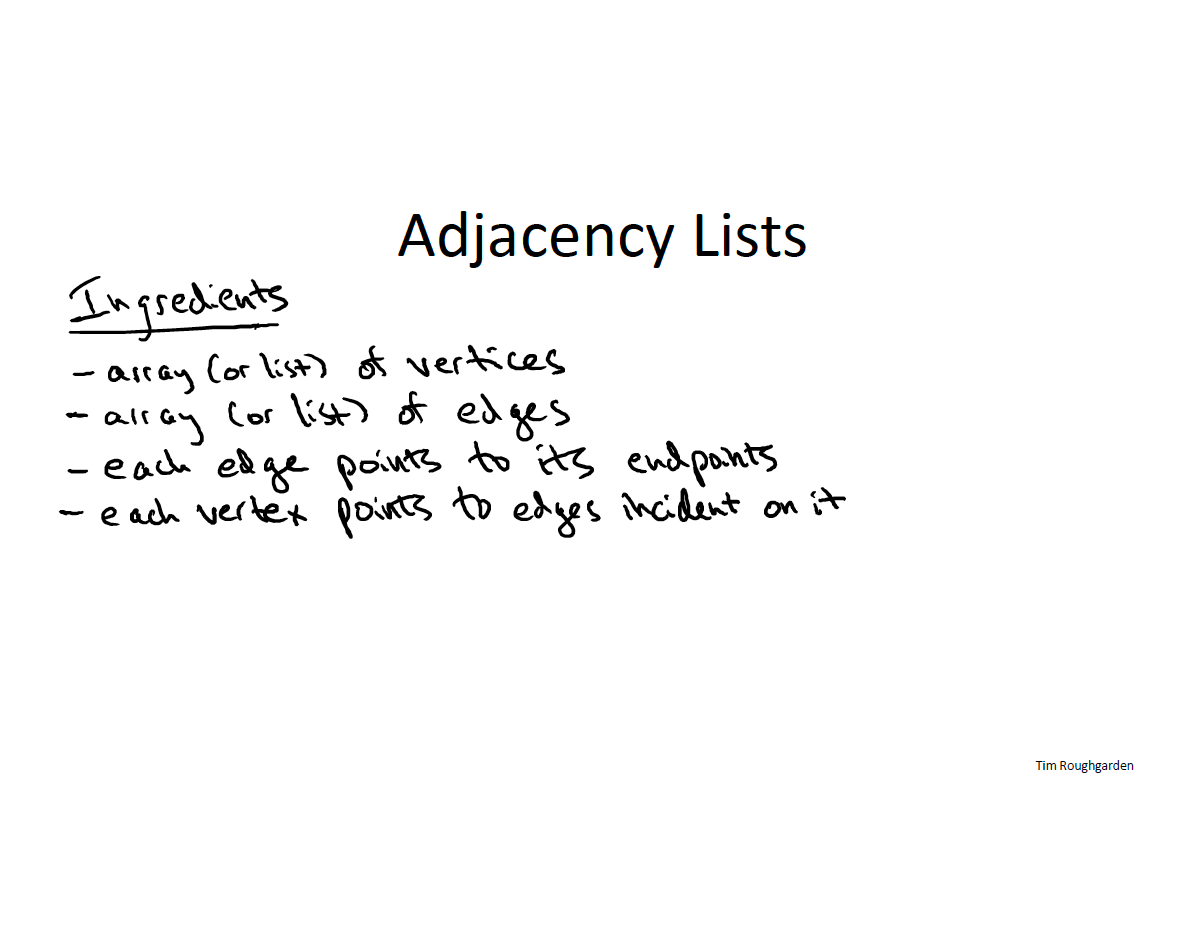 Adjacency Lists
Ingredients
- array (or list) of vertices
- array (or list) of edges
- each edge points to its endpoints
- each vertex points to edges incident on it
Tim Roughgarden